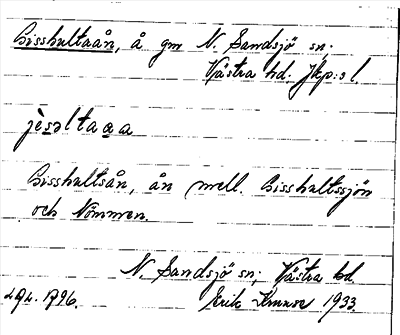 Gisshultaån, å gm N. Sandsjö sn.
Västra hd. Jkp:s l.
jèsəltaxa
Gisshultsån, ån mell. Gisshultssjön
och Nömmen.
N. Sandsjö sn; Västra hd.
Erik 1933.